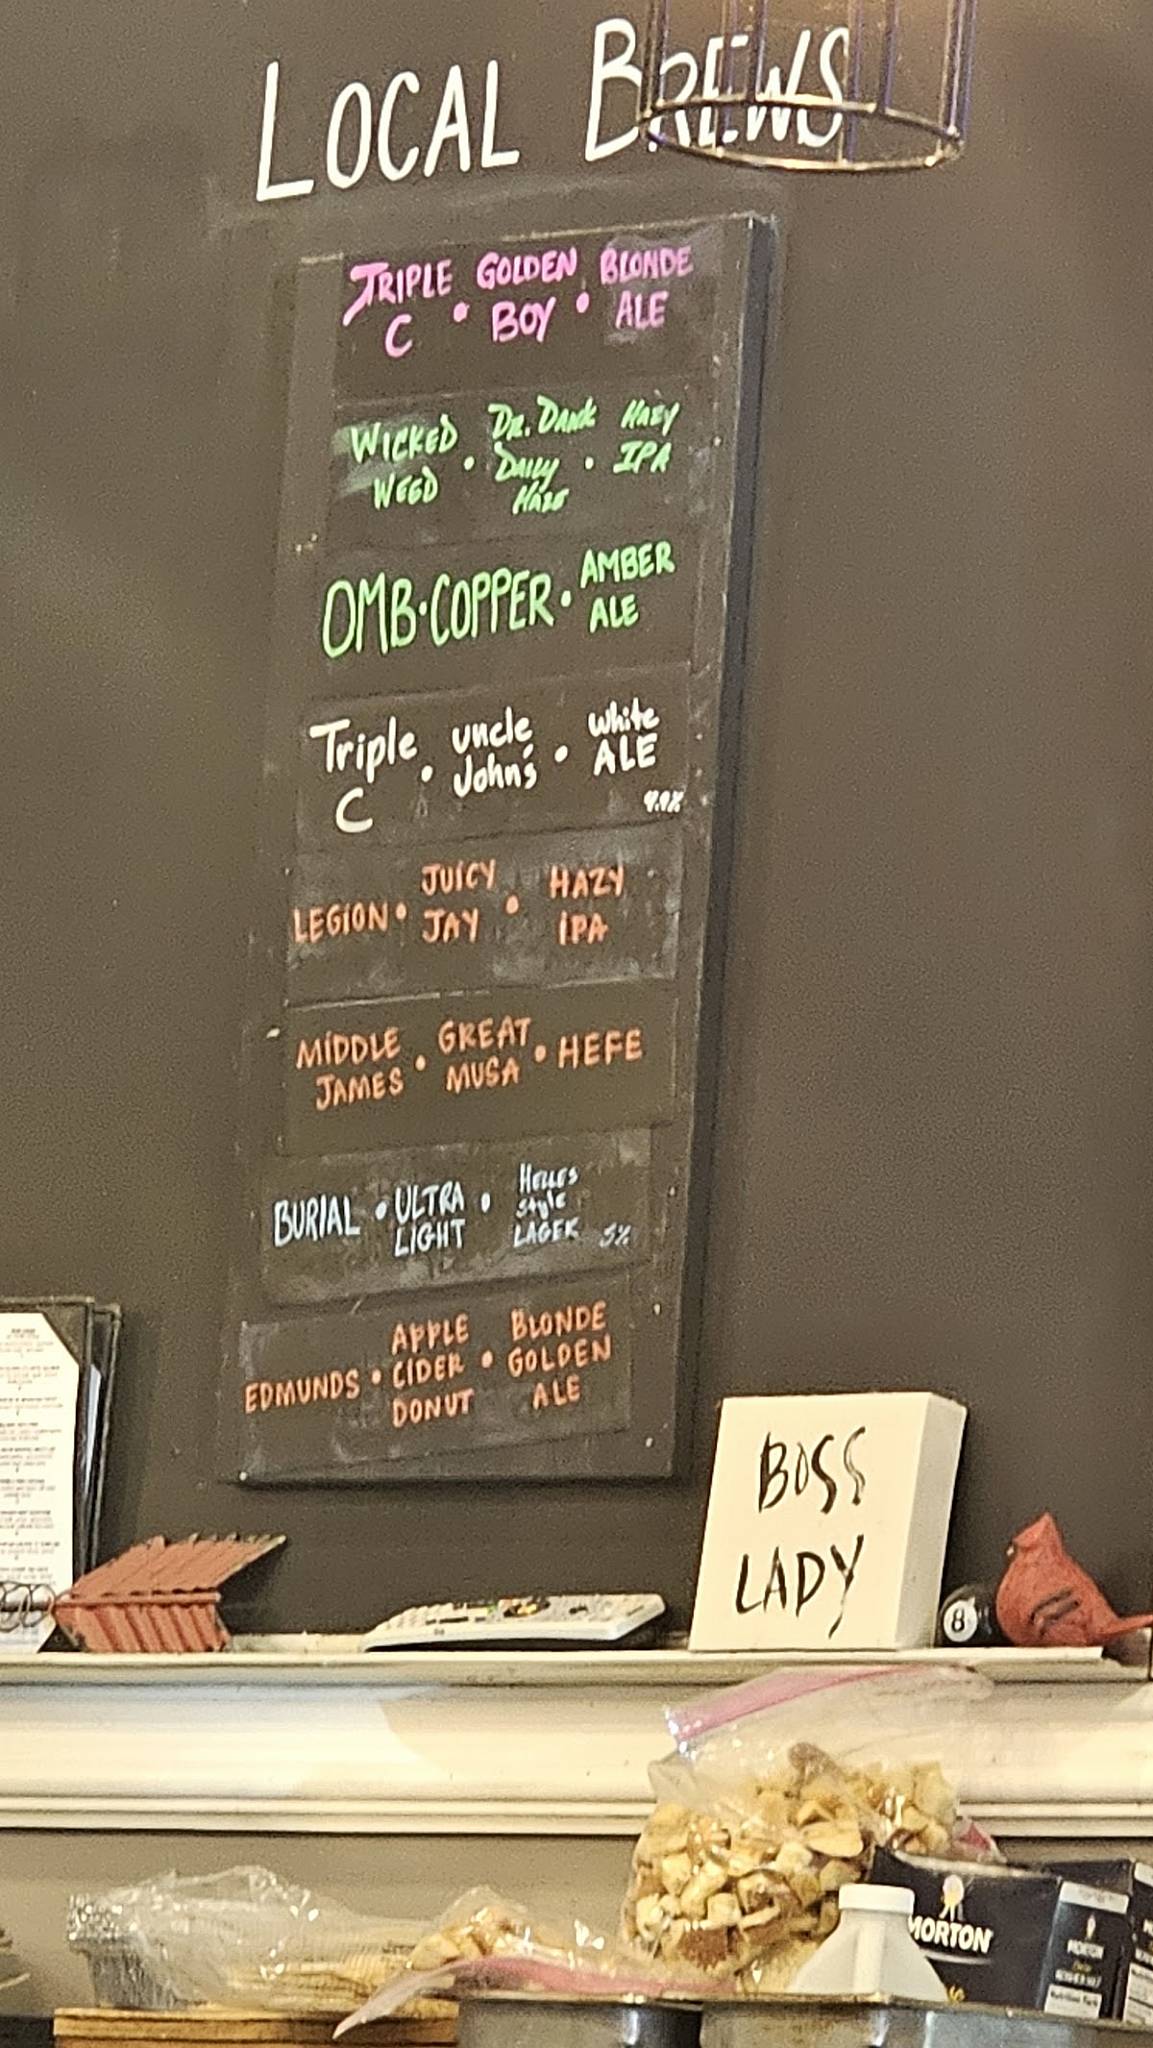 LOCAL BREWS
TRIPLE C • GOLDEN BOY • BLONDE ALE
WICKED WEED • DR. DANK DAILY HAZE • HAZY IPA
OMB • COPPER • AMBER ALE
Triple C • uncle John's • white ALE
LEGION • JUICY JAY • HAZY IPA
MIDDLE JAMES • GREAT MUSA • HEFE
BURIAL • ULTRA LIGHT • HELLES style LAGER 5%
EDMUNDS • APPLE CIDER DONUT • BLONDE GOLDEN ALE
BOSS
LADY
8
MORTON
MORTON
KOSHER SALT
Nutrition Facts